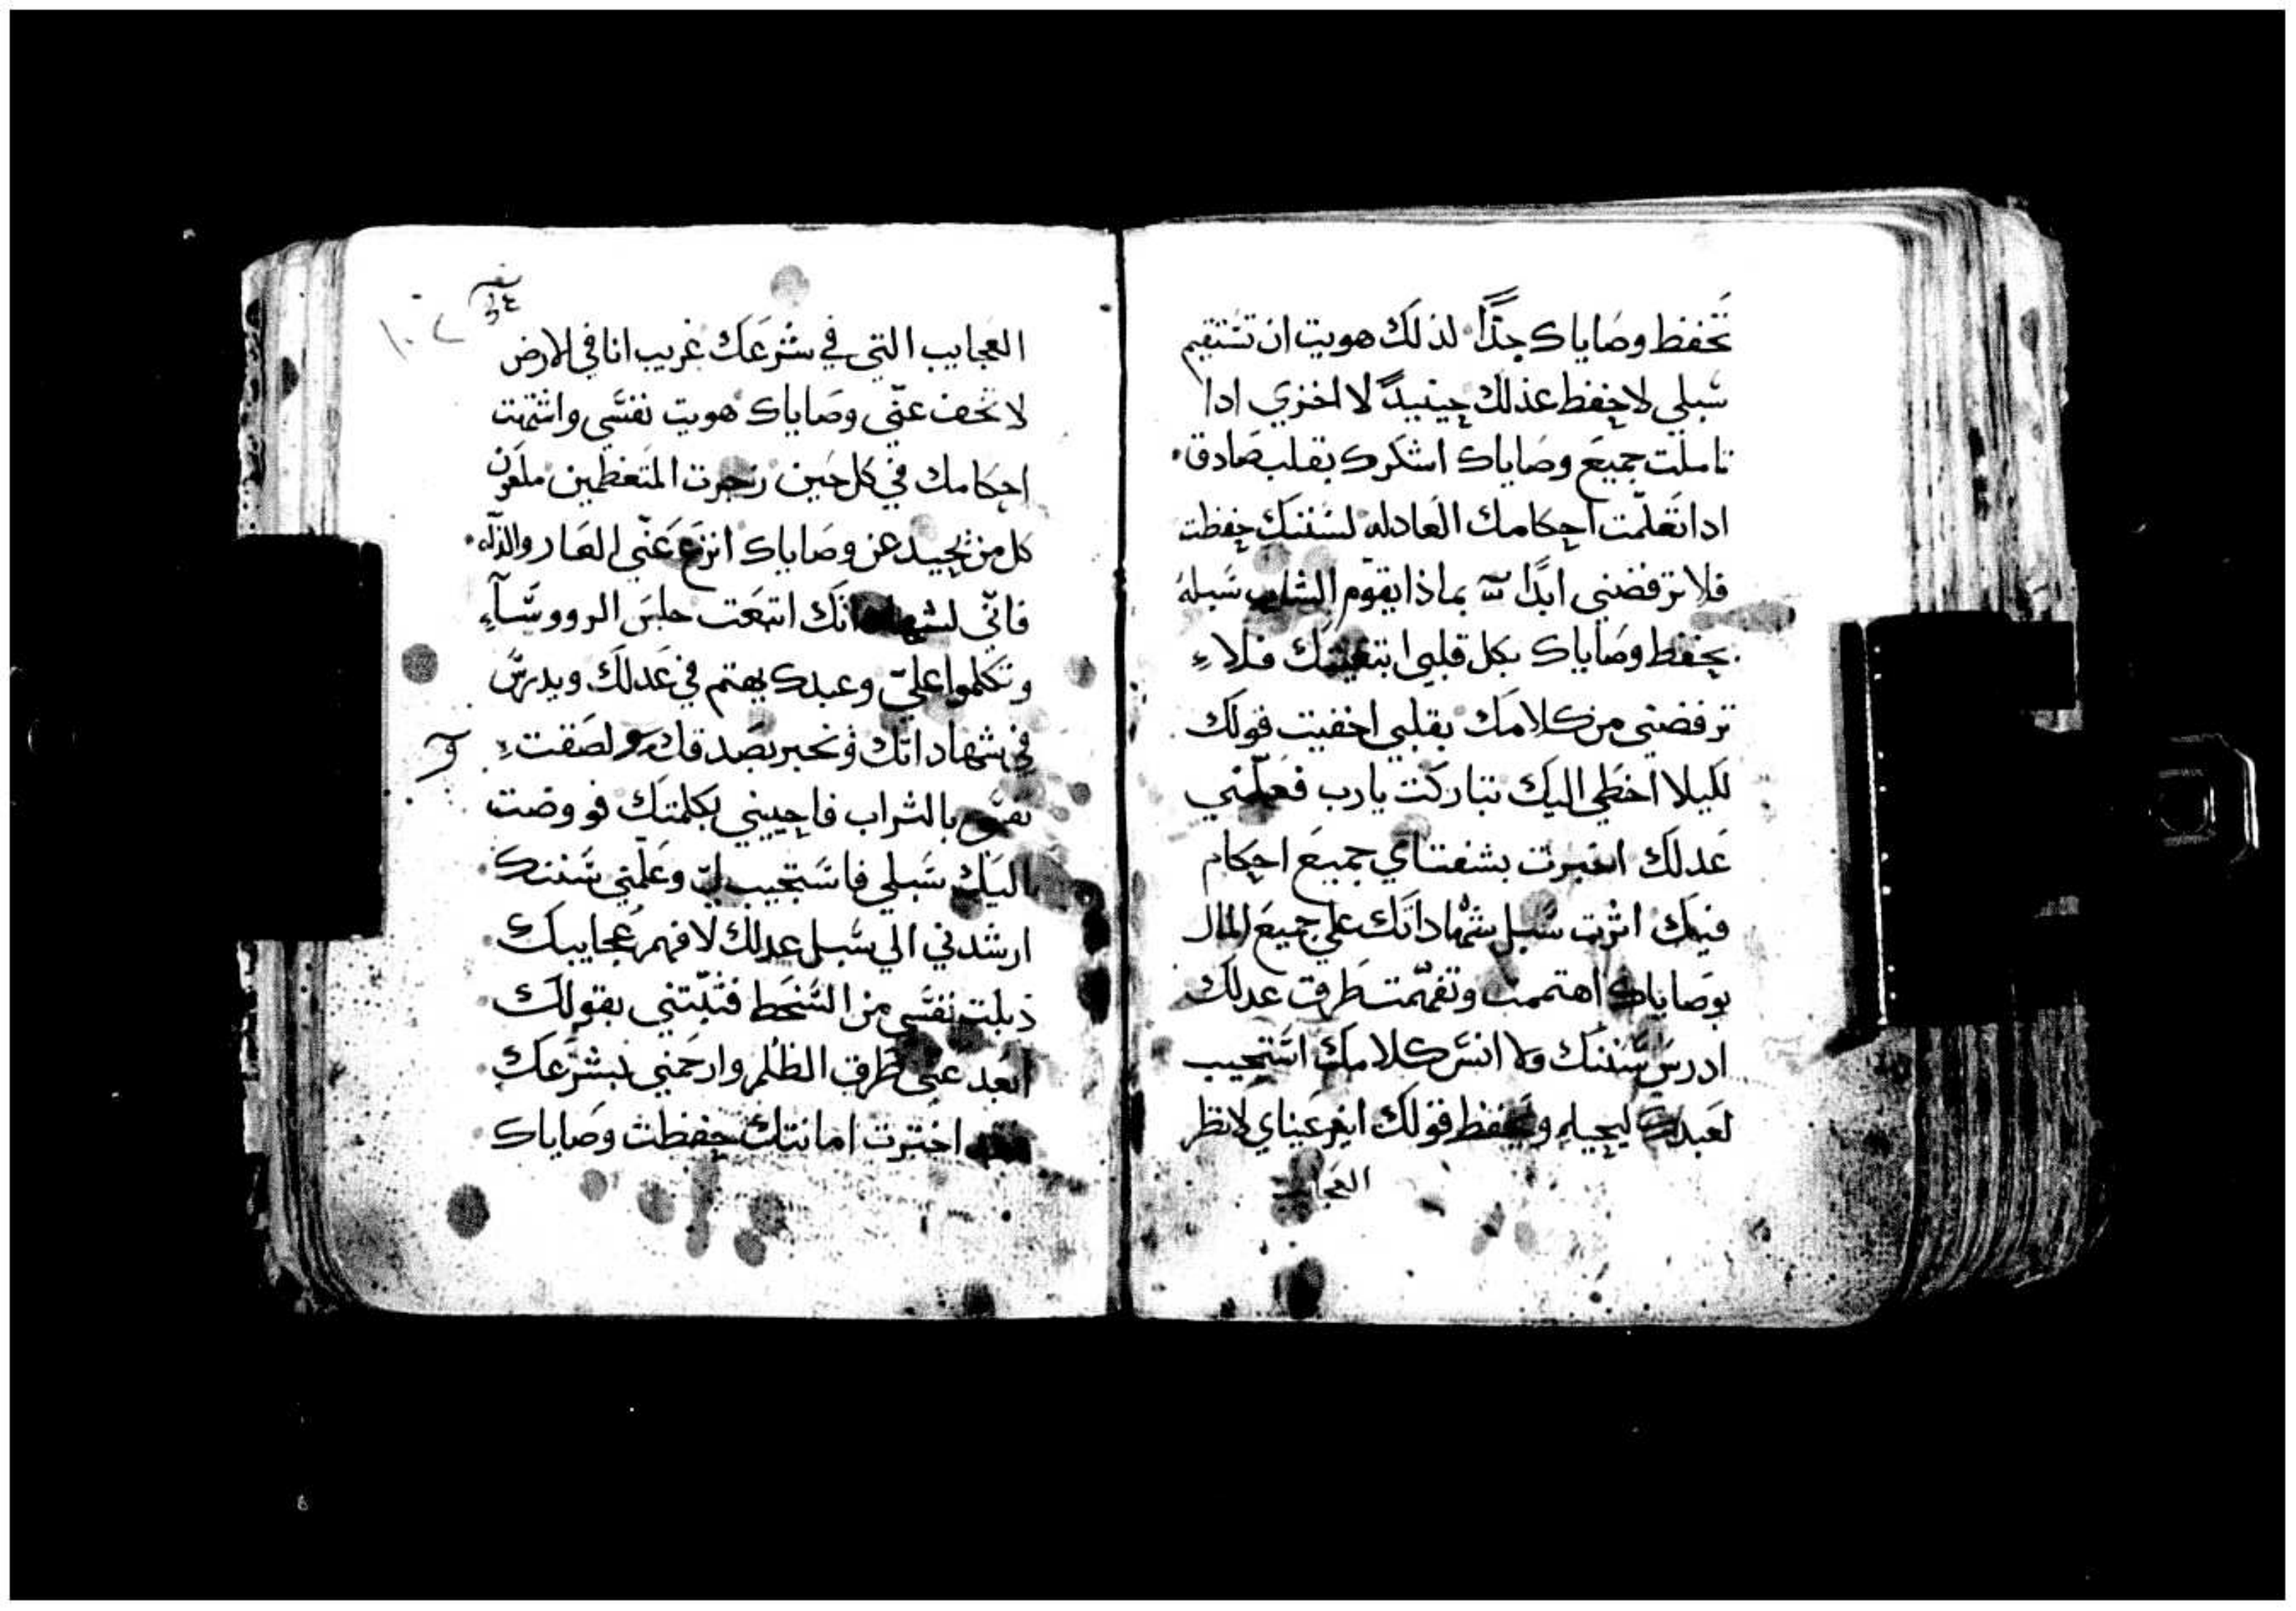 تحفظ وصاياك جدّاً لذلك هويت ان تستقيم
سبلي لاحفظ عذلك حينيدً لا اخزي ادا
تاملت جميع وصاياك اشكرك بقلب صادق
ادا تعلّمت احكامك العادله لسننك حفظت
فلا ترفضني ابدًا بماذا يقوّم الشاب سبله
بحفظ وصاياك بكل قلبي ابتغيتك فلا
ترفضني من كلامك بقلبي اخفيت قولك
لكيلا اخطي اليك تباركت يارب فعلّمني
عدلك اخبرت بشفتاي جميع احكام
فيك اثرت سبل شهاداتك علي جميع المال
بوصاياك اهتممت وتفهّمت طرق عدلك
ادرس سننك ولا انسي كلامك استجيب
لعبدك ليحيا ويحفظ قولك ابغر عيناي لانظر
العجايب
١٠٧
العجايب التي في شرعك غريب انا في الارض
لا تخف عنّي وصاياك هويت نفسي واشتهت
احكامك في كل حين زجرت المتعظمين ملعون
كل من يحيد عن وصاياك انزع عنّي العار والذله
فانّي انك اتبعت جلس الرووسآء
وتكلموا عليّ وعبدك يهتم في عدلك ويدرس
في شهاداتك ونخبر بصدقك لصقت
بالتراب فاحييني بكلمتك فووضت
اليك سبلي فاستجيب لي وعلّمني سننك
ارشدني الي سبل عدلك لافهم عجايبك
ذبلت نفسي من السخط فثبّتني بقولك
ابعد عنّي طرق الظلم وارحمني بشرعك
اخترت امانتك حفظت وصاياك